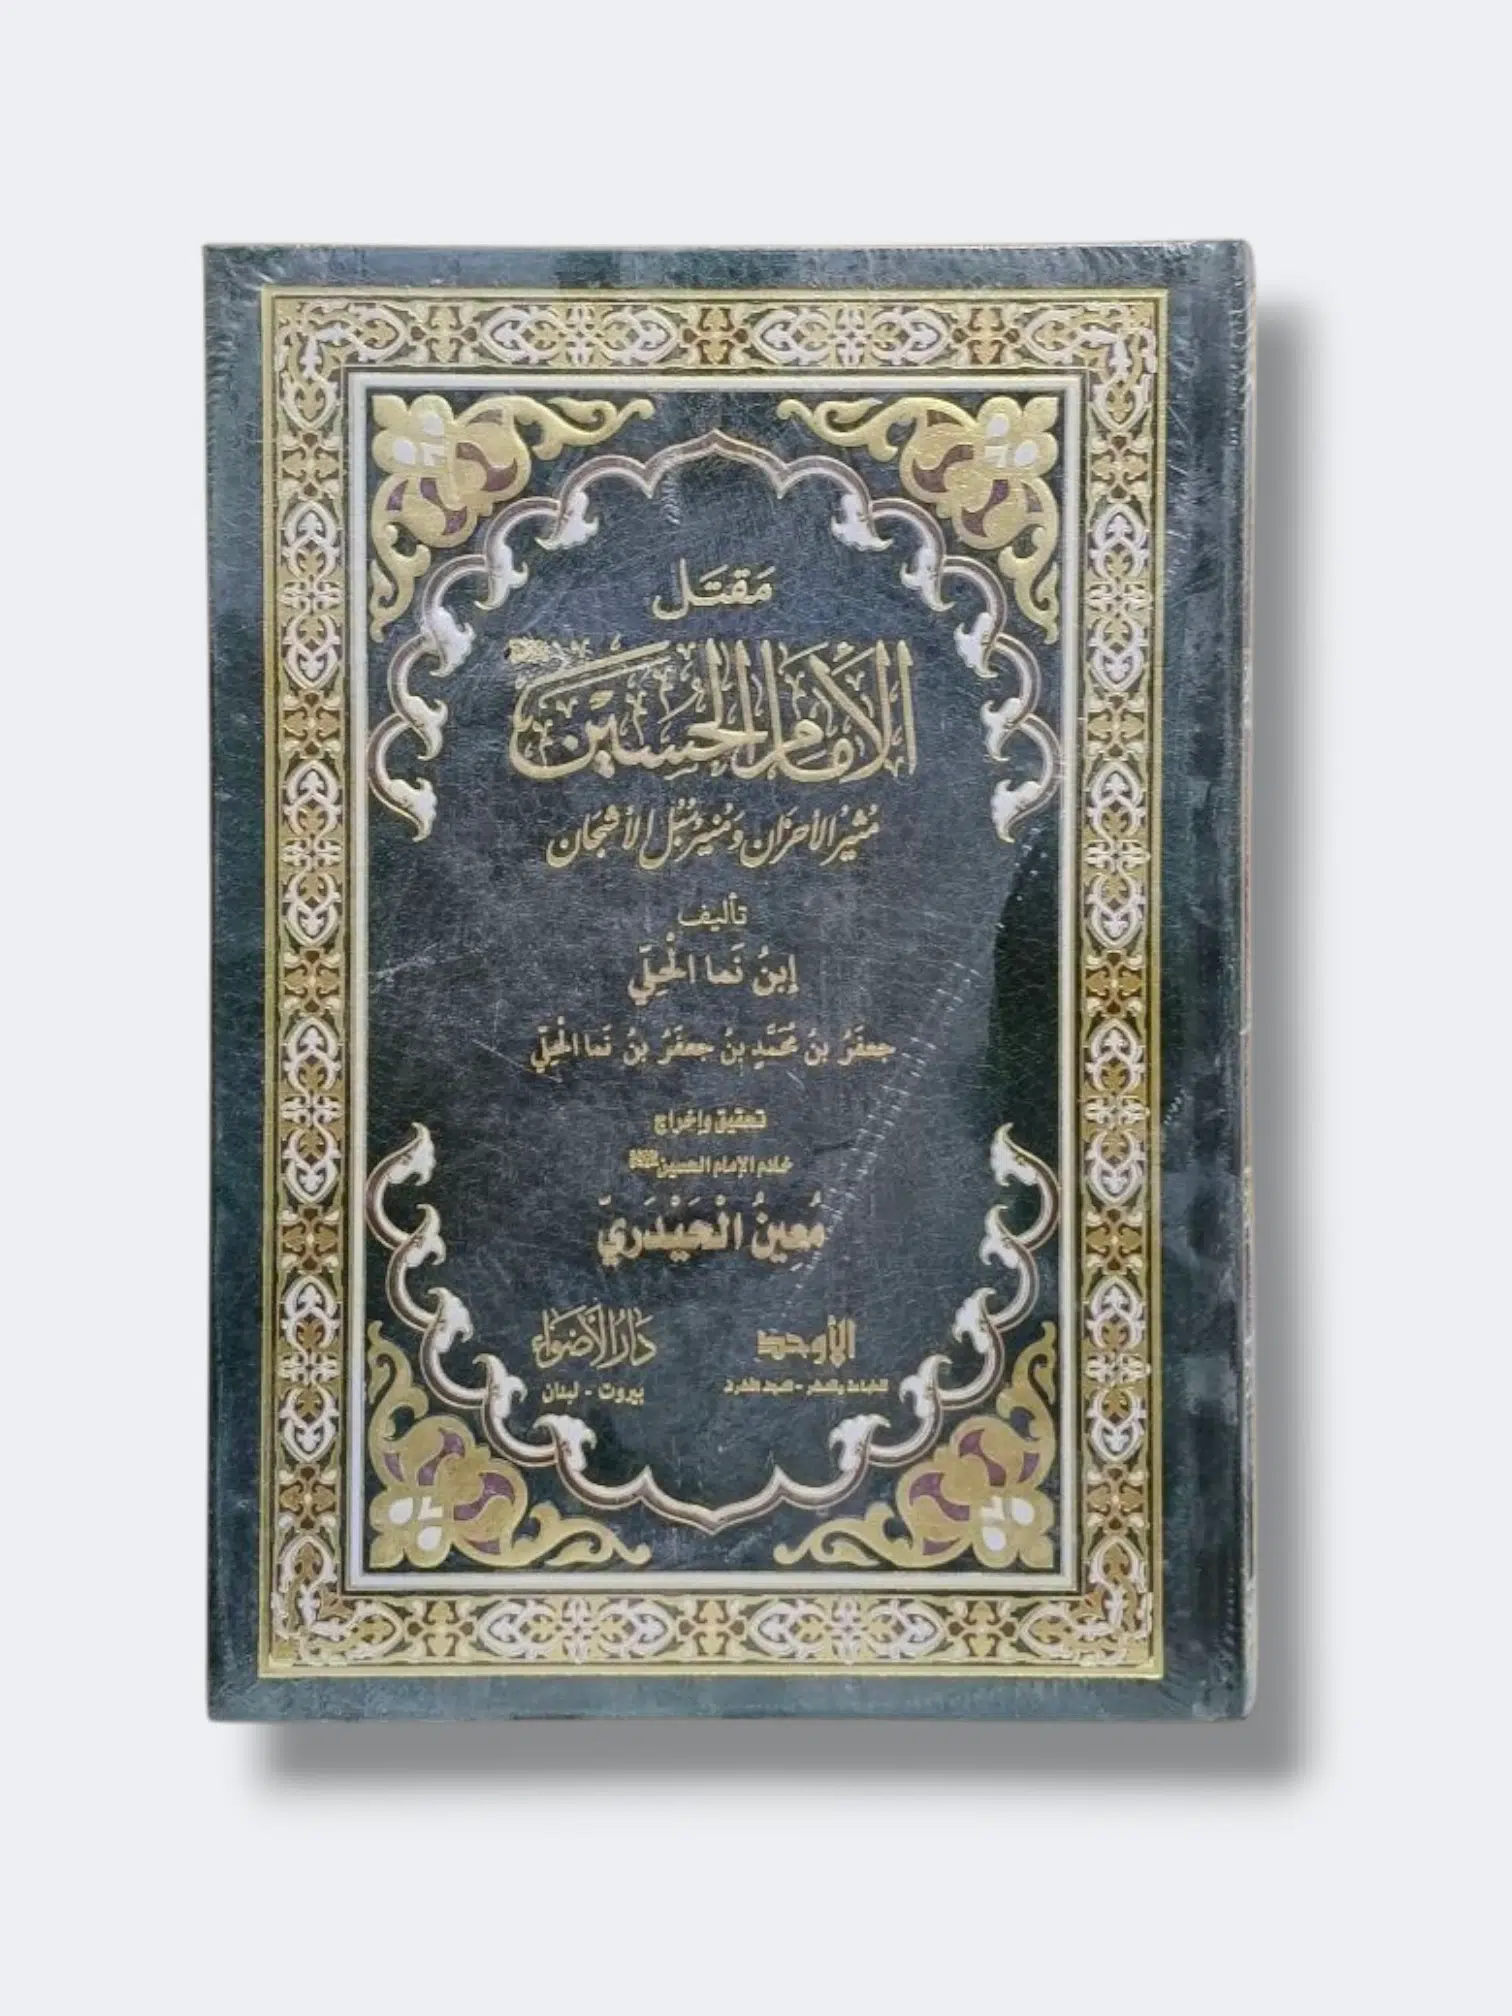 مَقتَل
الإمَام الحُسَين
مُثيرُ الأحزَان ومُنيرُ سُبُل الأشجَان
تأليف
إبنُ نَما الْحِلِّي
جعفَرُ بنُ مُحَمَّدٍ بنُ جعفَرُ بنُ نَما الْحِلِّي
تحقيق وإخراج
خادم الإمام الحسين
مُعِينُ الْحَيْدَرِيّ
الأوحد
للطباعة والنشر - النجف الأشرف
دَارُ الأَضوَاء
بيروت - لبنان